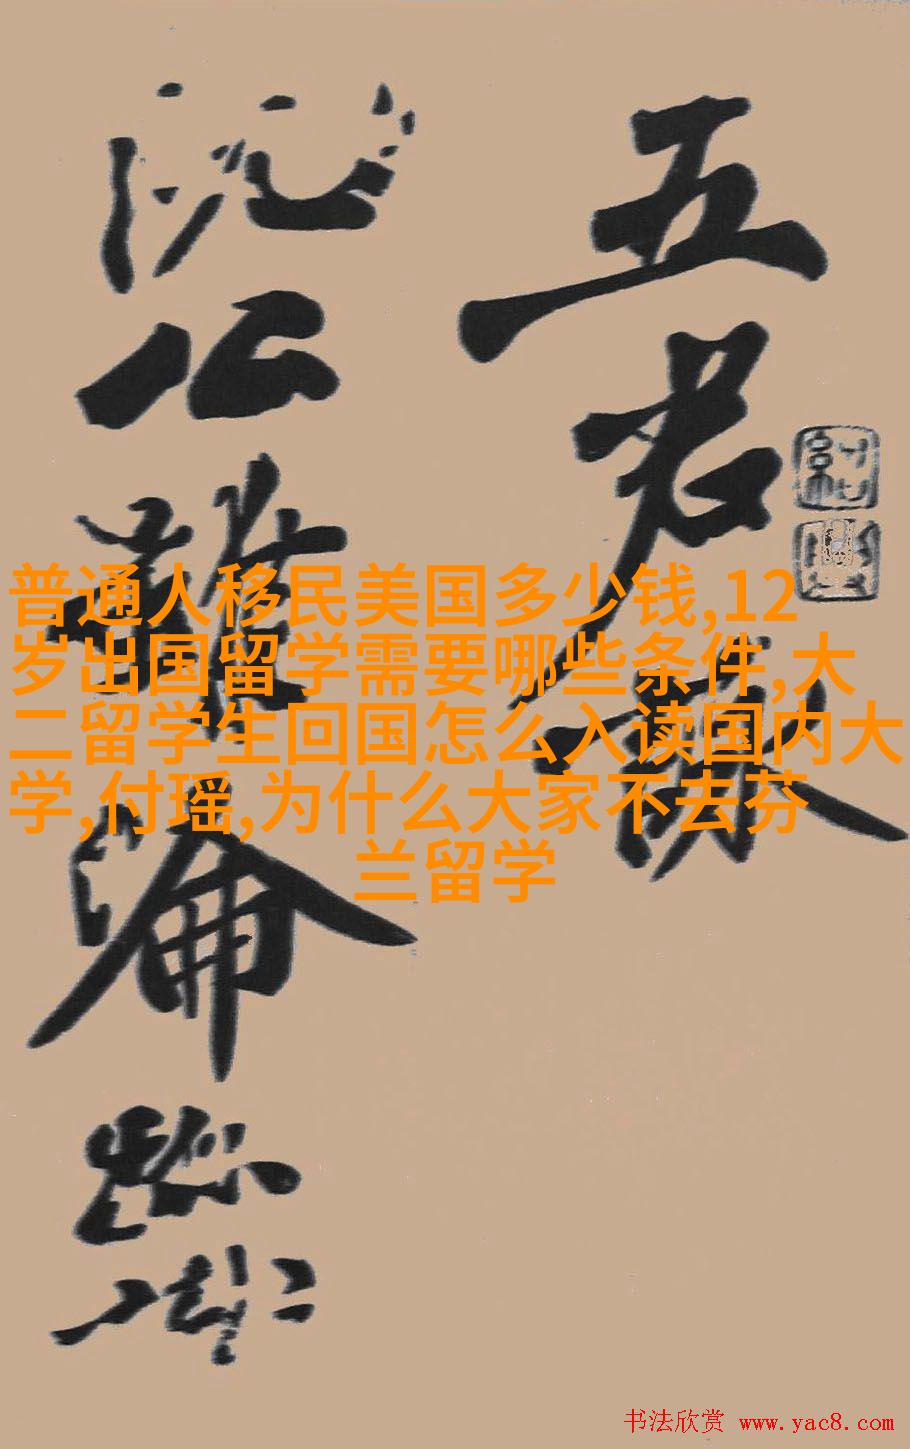 五君詠
阮公雖淪跡
普通人移民美国多少钱,12
岁出国留学需要哪些条件,大
二留学生回国怎么入读国内大
学,付瑶,为什么大家不去芬
兰留学
书法欣赏 www.yac8.com